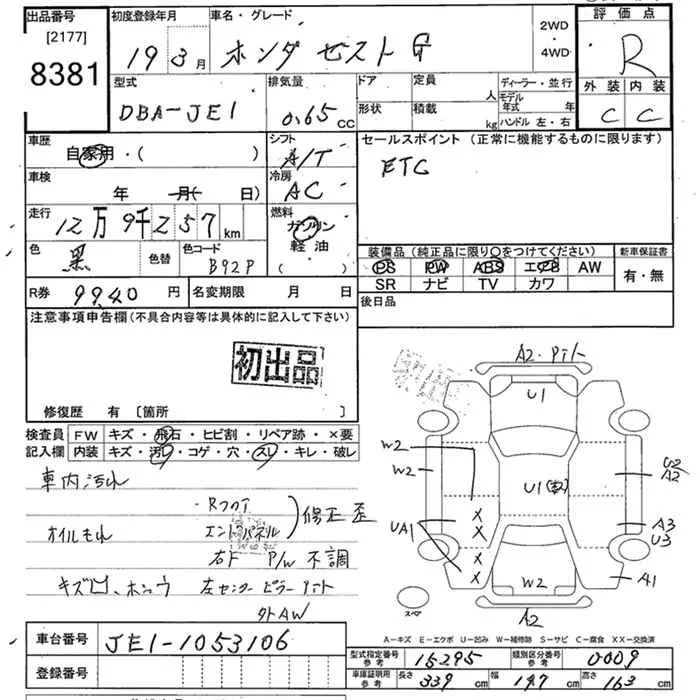 出品番号
[2177]
8381
初度登録年月
19 3月
車名・グレード
ホンダ ゼスト G
2WD
・
4WD
評価点
R
外装 内装
C C
型式
DBA-JE1
排気量
0.65 CC
ドア
定員
人
形状
積載
kg
ディーラー・並行
モデル年式 年
ハンドル 左・右
車歴
自家用・( )
シフト
A/T
セールスポイント (正常に機能するものに限ります)
ETC
車検
年 月( 日)
冷房
AC
走行
12万9千257km
燃料
ガソリン
軽油
( )
色
黒
色替
色コード
B92P
装備品 (純正品に限り○をつけてください)
PS PW ABS エアB AW
SR ナビ TV カワ
新車保証書
有・無
R券 9940円
名変期限 月 日
後日品
注意事項申告欄(不具合内容等は具体的に記入して下さい)
初出品
修復歴 有 [箇所 ]
検査員記入欄
FW キズ・飛石・ヒビ割・リペア跡・×要
内装 キズ・汚レ・コゲ・穴・スレ・キレ・破レ
車内汚れ
・Rフロア
オイルもれ
エンドパネル
修正歪
右F P/W 不調
キズ凹、
左センターピラー
社外AW
A2・
U1
W2
W2
U1
U2
A2
A3
U3
UA1
X
X
X
X
A1
W2
A2
スペア
A-キズ E-エクボ U-凹み W-補修跡 S-サビ C-腐食 XX-交換済
車台番号
JE1-1053106
登録番号
型式指定番号 参考
15295
類別区分番号 参考
0009
車庫証明用 参考
長さ 339cm
幅 147cm
高さ 163cm